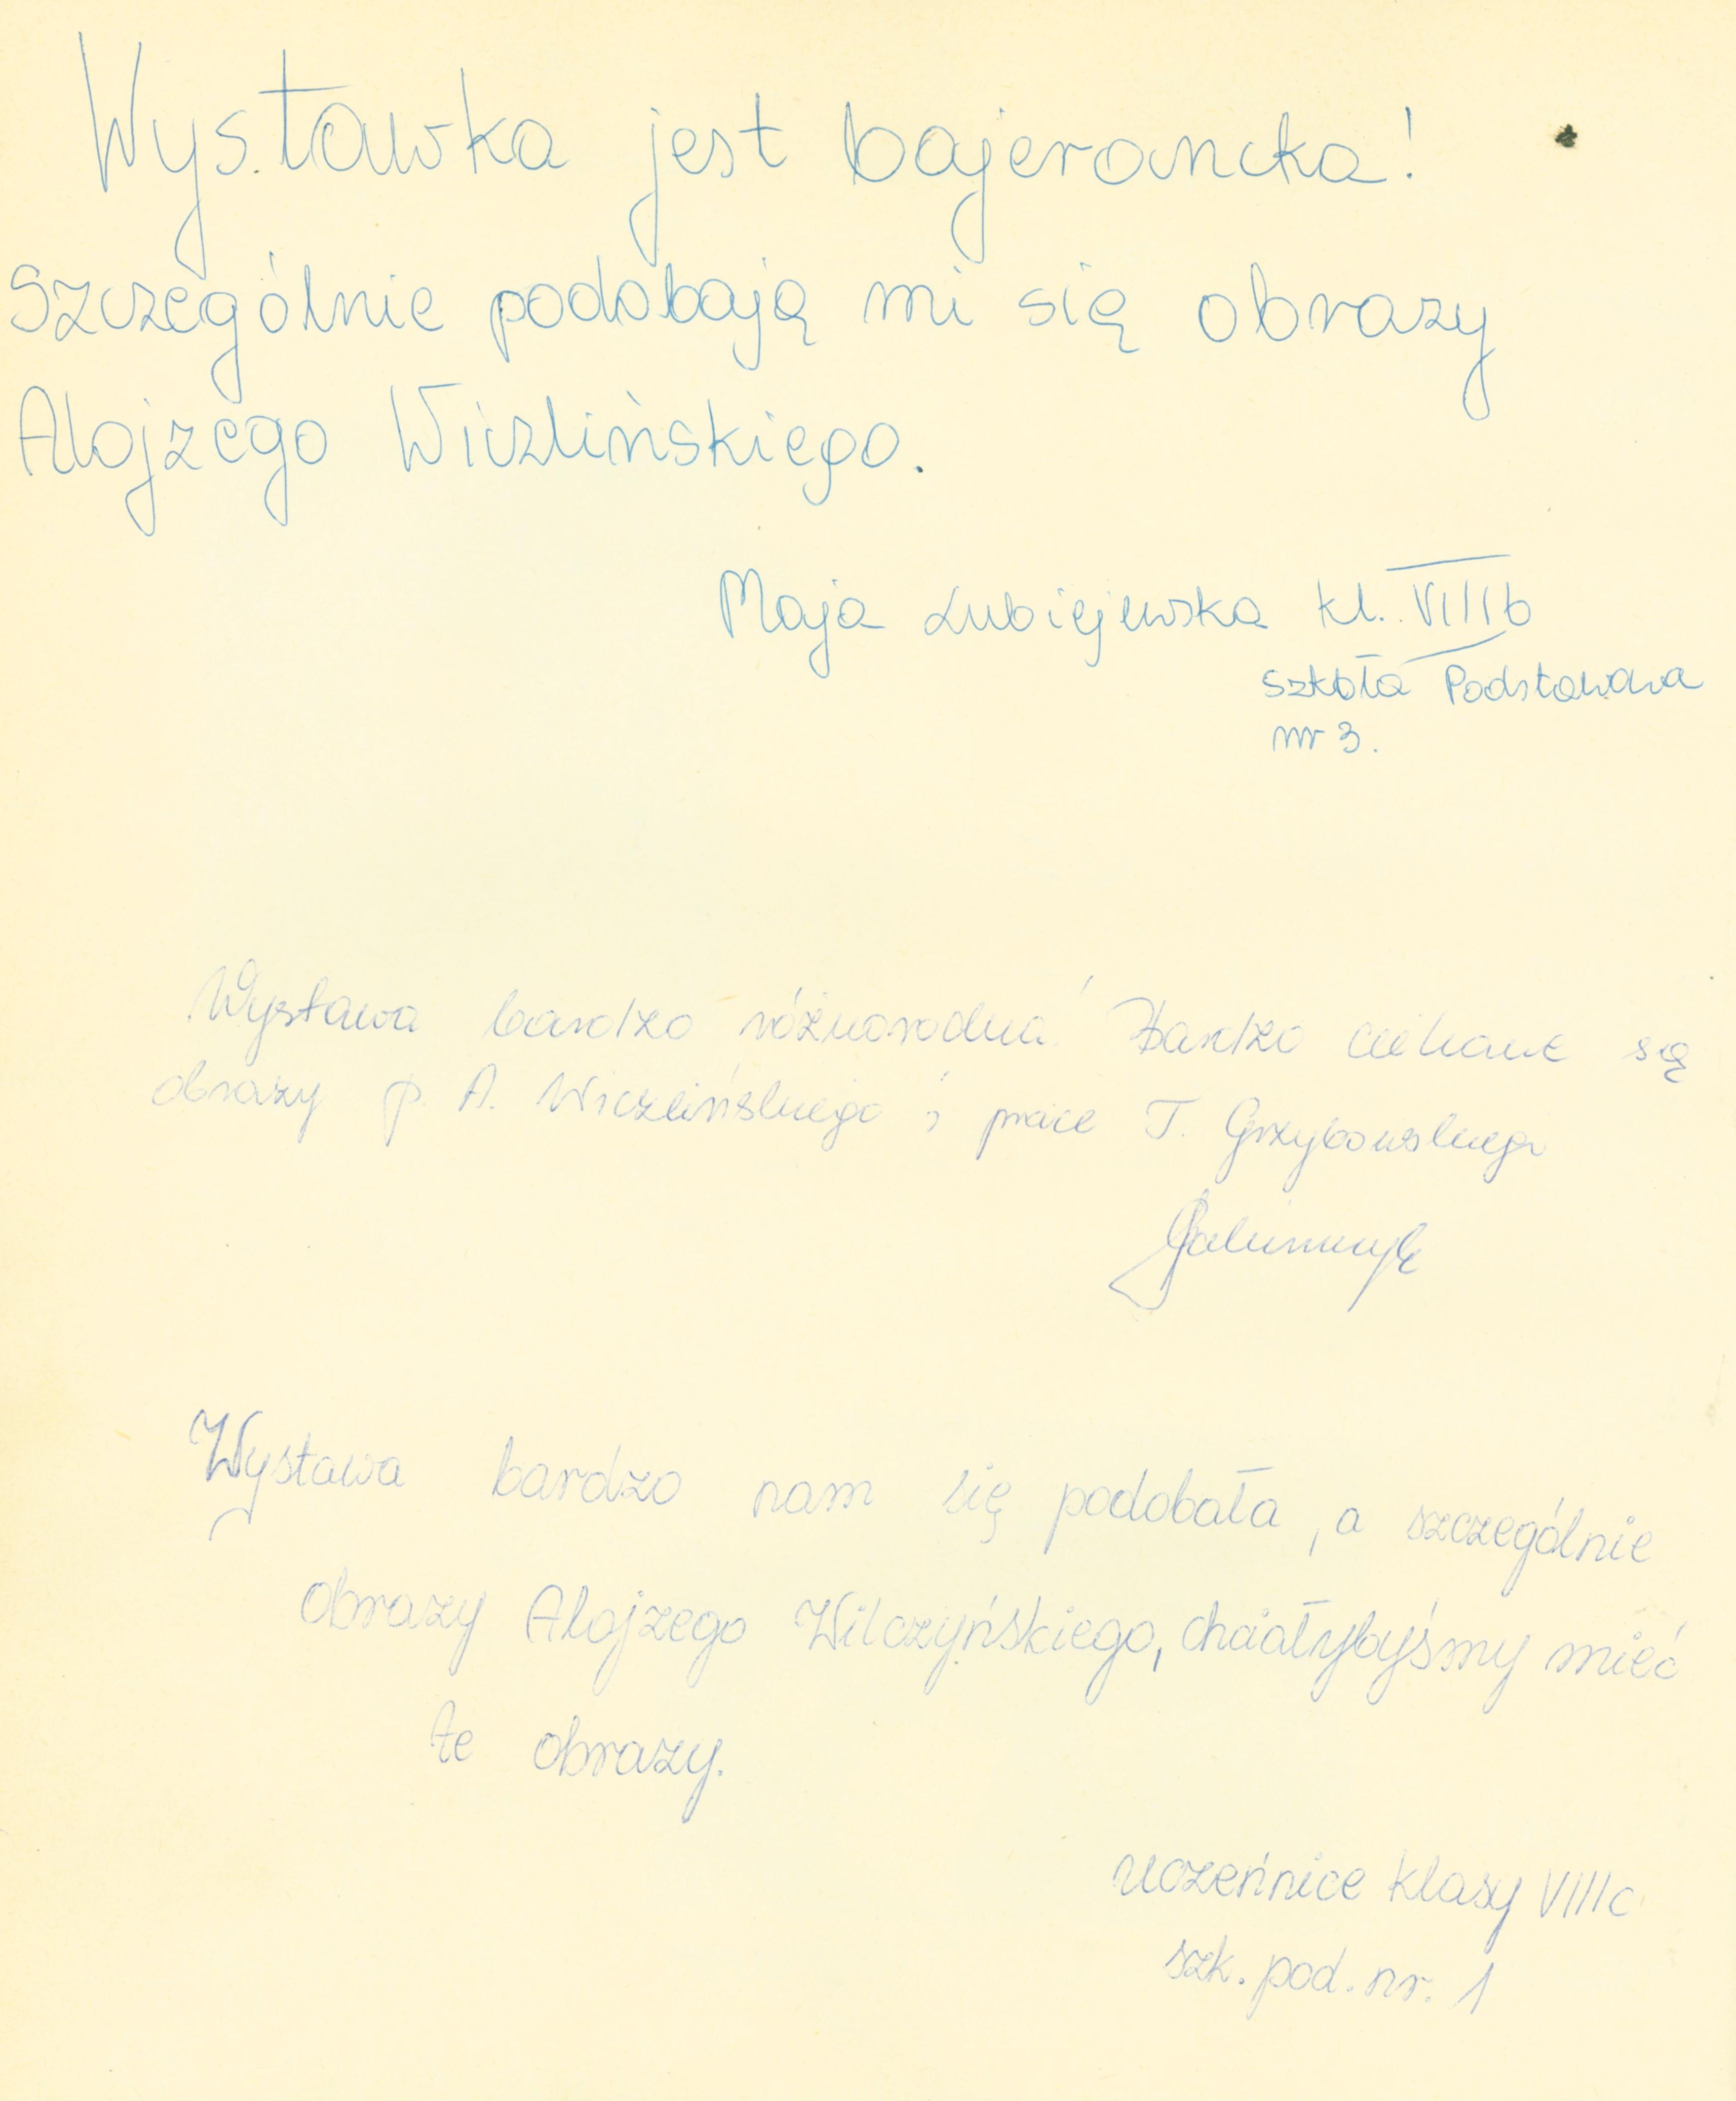 Wystawka jest bajerancka!
Szczególnie podobają mi się obrazy
Alojzego Wiczlińskiego.
Maja Lubiejewska kl. VIIIb
szkoła Podstawowa
nr 3.
Wystawa bardzo różnorodna. Bardzo ciekawe są
obrazy p. A. Wiczlińskiego i prace T. Grzybowskiego
Wystawa bardzo nam się podobała, a szczególnie
obrazy Alojzego Wilczyńskiego, chciałybyśmy mieć
te obrazy.
uczennice klasy VIIIc
szk. pod. nr. 1